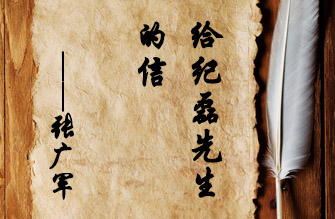 给纪磊先生
的信
——张广军